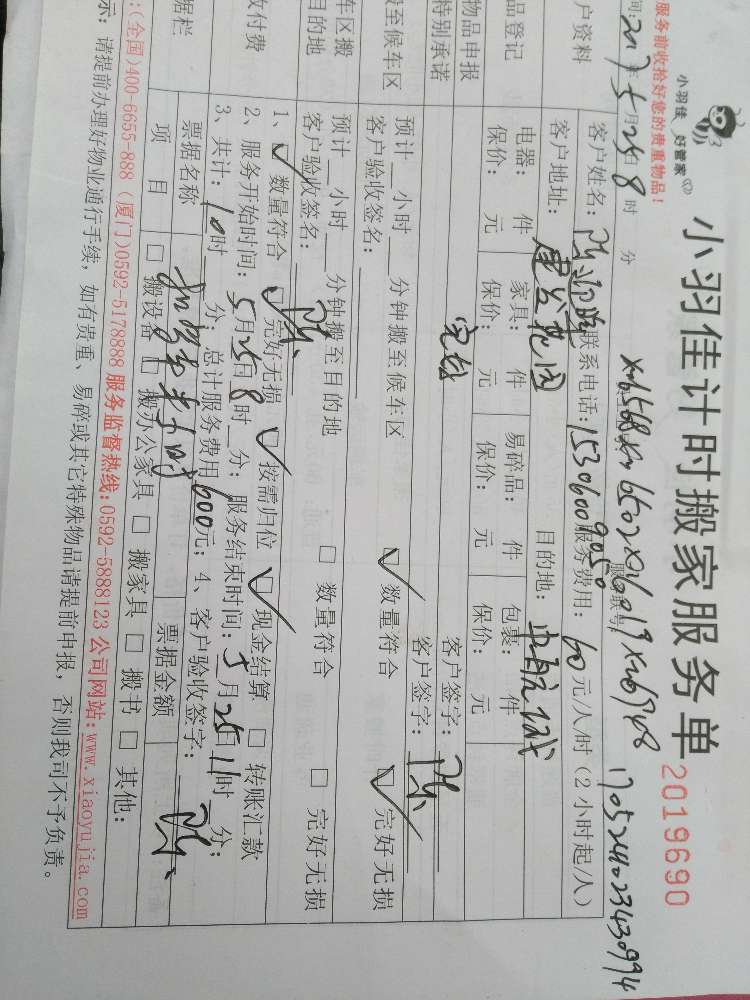 小羽佳计时搬家服务单
小羽佳 好管家
2019690
服务前收拾好您的贵重物品!
xm6568 xm6502 xm6019 xm6948 170524023430994
间: 2017年5月25日8时 分
户资料 客户姓名: 联系电话: 15306009050 服务费用: 60元/人/时(2小时起/人)
客户地址: 建发花园 目的地:
品登记 电器: 件 家具: 件 易碎品: 件 包裹: 件
保价: 元 保价: 元 保价: 元 保价: 元
物品申报
特别承诺 客户签字: 陈
至候车区 预计 小时 分钟搬至候车区 数量符合 完好无损
客户验收签名: 客户签字:
车区搬 预计 小时 分钟搬至目的地 数量符合 完好无损
目的地 客户验收签名: 陈
付费 1、 数量符合 完好无损 按需归位 现金结算 转账汇款
2、服务开始时间: 5月25日8时 分; 服务结束时间: 5月25日11时 分;
3、共计: 10时 分, 总计服务费用600元; 4、客户验收签字: 陈
据栏 票据名称 票据金额
项 目 搬设备 搬办公家具 搬家具 搬书 其他:
:(全国)400-6655-888 (厦门)0592-5178888 服务监督热线:0592-5888123 公司网站:www.xiaoyujia.com
示: 请提前办理好物业通行手续, 如有贵重、易碎或其它特殊物品请提前申报, 否则我司不予负责。